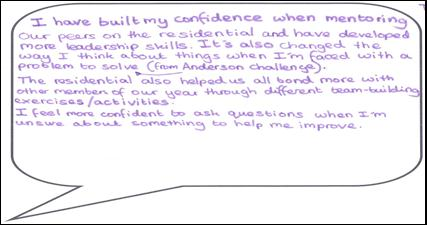 I have built my confidence when mentoring
Our peers on the residential and have developed
more leadership skills. It's also changed the
way I think about things when I'm faced with a
problem to solve (from Anderson challenge).
The residential also helped us all bond more with
other member of our year through different team-building
exercises/activities.
I feel more confident to ask questions when I'm
unsure about something to help me improve.